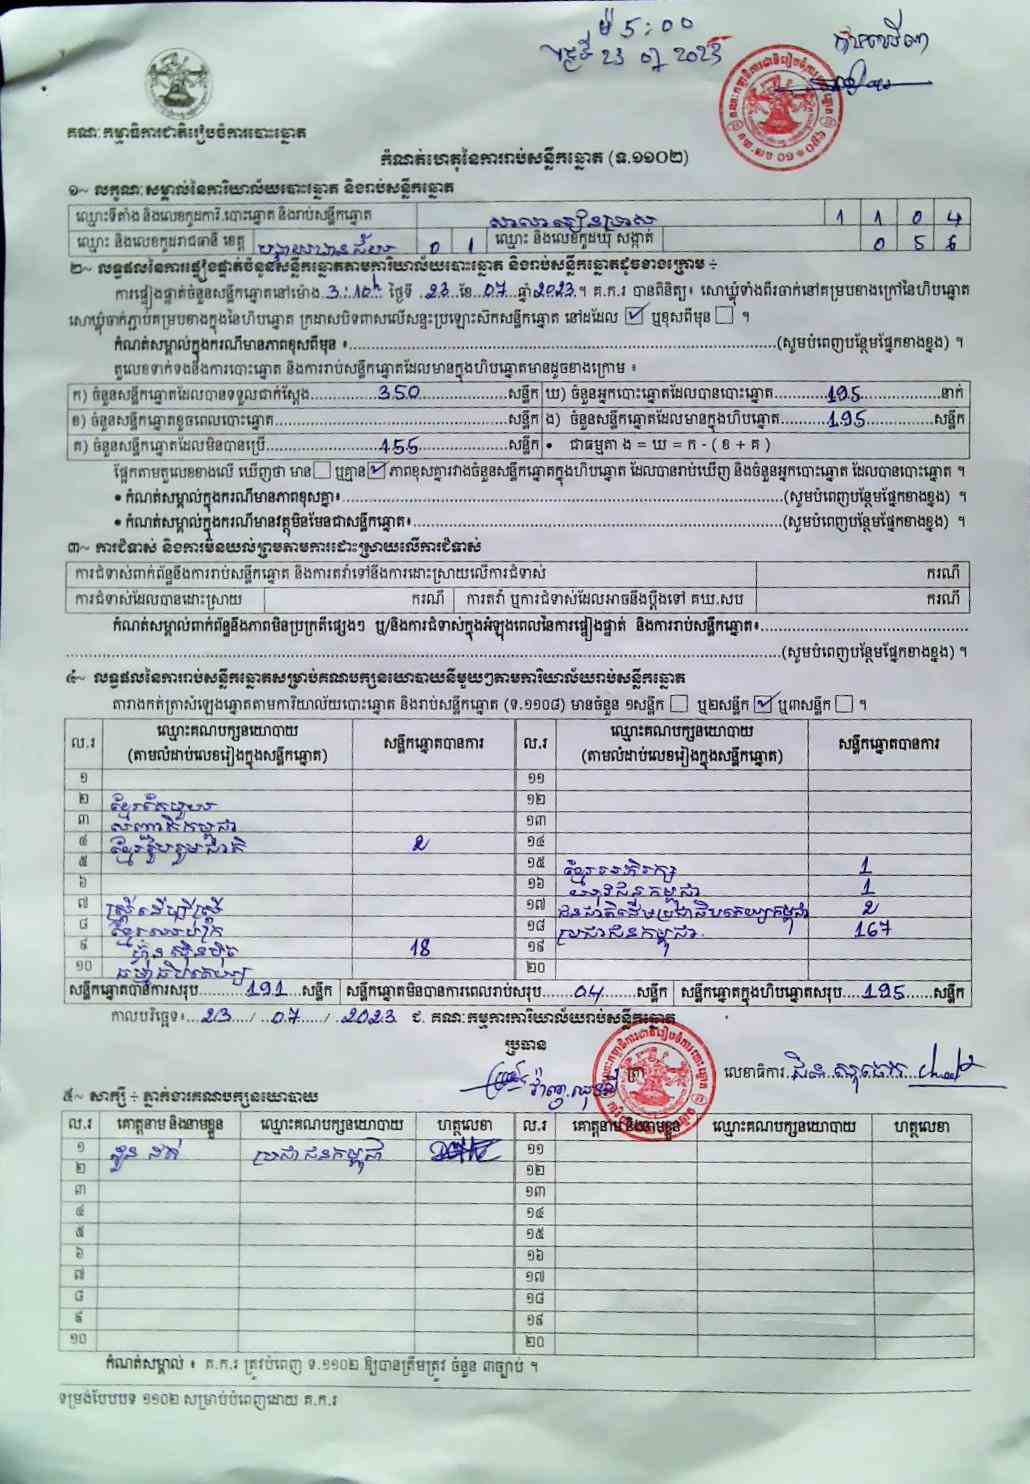 ម៉ 5:00
ថ្ងៃទី 23 07 2023
គណៈកម្មាធិការជាតិរៀបចំការបោះឆ្នោត
កំណត់ហេតុនៃការរាប់សន្លឹកឆ្នោត (ទ.១១០២)
១~ លក្ខណៈសម្គាល់នៃការិយាល័យបោះឆ្នោត និងរាប់សន្លឹកឆ្នោត
ឈ្មោះទីតាំង និងលេខកូដការិ.បោះឆ្នោត និងរាប់សន្លឹកឆ្នោត សាលា 1 1 0 4
ឈ្មោះ និងលេខកូដរាជធានី ខេត្ត បន្ទាយមានជ័យ 0 1 ឈ្មោះ និងលេខកូដឃុំ សង្កាត់ 0 5 6
២~ លទ្ធផលនៃការផ្ទៀងផ្ទាត់ចំនួនសន្លឹកឆ្នោតតាមការិយាល័យបោះឆ្នោត និងរាប់សន្លឹកឆ្នោតដូចខាងក្រោម ÷
ការផ្ទៀងផ្ទាត់ចំនួនសន្លឹកឆ្នោតនៅម៉ោង 3:10 ថ្ងៃទី 23 ខែ 07 ឆ្នាំ 2023 ។ គ.ក.រ បានពិនិត្យ៖ សោឃ្លុំទាំងពីរចាក់នៅគម្របខាងក្រៅនៃហិបឆ្នោត
សោឃ្លុំចាក់ភ្ជាប់គម្របខាងក្នុងនៃហិបឆ្នោត ក្រដាសបិទពាសលើសន្ទះប្រឡោះសិកសន្លឹកឆ្នោត នៅដដែល ☑ ឬខុសពីមុន ☐ ។
កំណត់សម្គាល់ក្នុងករណីមានភាពខុសពីមុន ៖ (សូមបំពេញបន្ថែមផ្នែកខាងខ្នង) ។
តួលេខទាក់ទងនឹងការបោះឆ្នោត និងការរាប់សន្លឹកឆ្នោតដែលមានក្នុងហិបឆ្នោតមានដូចខាងក្រោម ៖
ក) ចំនួនសន្លឹកឆ្នោតដែលបានទទួលជាក់ស្តែង 350 សន្លឹក ឃ) ចំនួនអ្នកបោះឆ្នោតដែលបានបោះឆ្នោត 195 នាក់
ខ) ចំនួនសន្លឹកឆ្នោតខូចពេលបោះឆ្នោត សន្លឹក ង) ចំនួនសន្លឹកឆ្នោតដែលមានក្នុងហិបឆ្នោត 195 សន្លឹក
គ) ចំនួនសន្លឹកឆ្នោតដែលមិនបានប្រើ 155 សន្លឹក • ជាធម្មតា ង = ឃ = ក - ( ខ + គ )
ផ្អែកតាមតួលេខខាងលើ ឃើញថា មាន ☐ ឬគ្មាន ☑ ភាពខុសគ្នារវាងចំនួនសន្លឹកឆ្នោតក្នុងហិបឆ្នោត ដែលបានរាប់ឃើញ និងចំនួនអ្នកបោះឆ្នោត ដែលបានបោះឆ្នោត ។
• កំណត់សម្គាល់ក្នុងករណីមានភាពខុសគ្នា៖ (សូមបំពេញបន្ថែមផ្នែកខាងខ្នង) ។
• កំណត់សម្គាល់ក្នុងករណីមានវត្ថុមិនមែនជាសន្លឹកឆ្នោត៖ (សូមបំពេញបន្ថែមផ្នែកខាងខ្នង) ។
៣~ ការជំទាស់ និងការមិនយល់ព្រមតាមការដោះស្រាយលើការជំទាស់
ការជំទាស់ពាក់ព័ន្ធនឹងការរាប់សន្លឹកឆ្នោត និងការតវ៉ាទៅនឹងការដោះស្រាយលើការជំទាស់ ករណី
ការជំទាស់ដែលបានដោះស្រាយ ករណី ការតវ៉ា ឬការជំទាស់ដែលអាចនឹងប្តឹងទៅ គឃ.សប ករណី
កំណត់សម្គាល់ពាក់ព័ន្ធនឹងភាពមិនប្រក្រតីផ្សេងៗ ឬ/និងការជំទាស់ក្នុងអំឡុងពេលនៃការផ្ទៀងផ្ទាត់ និងការរាប់សន្លឹកឆ្នោត៖
(សូមបំពេញបន្ថែមផ្នែកខាងខ្នង) ។
៤~ លទ្ធផលនៃការរាប់សន្លឹកឆ្នោតសម្រាប់គណបក្សនយោបាយនីមួយៗតាមការិយាល័យរាប់សន្លឹកឆ្នោត
តារាងកត់ត្រាសំឡេងឆ្នោតតាមការិយាល័យបោះឆ្នោត និងរាប់សន្លឹកឆ្នោត (ទ.១១០៨) មានចំនួន ១សន្លឹក ☐ ឬ២សន្លឹក ☑ ឬ៣សន្លឹក ☐ ។
ល.រ ឈ្មោះគណបក្សនយោបាយ (តាមលំដាប់លេខរៀងក្នុងសន្លឹកឆ្នោត) សន្លឹកឆ្នោតបានការ ល.រ ឈ្មោះគណបក្សនយោបាយ (តាមលំដាប់លេខរៀងក្នុងសន្លឹកឆ្នោត) សន្លឹកឆ្នោតបានការ
១ ១១
២ ខ្មែរតែមួយ ១២
៣ សញ្ជាតិកម្ពុជា ១៣
៤ ខ្មែររួបរួមជាតិ 2 ១៤
៥ ១៥ ខ្មែរអភិរក្ស 1
៦ ១៦ យុវជនកម្ពុជា 1
៧ ស្ត្រីដើម្បីស្ត្រី ១៧ ជនជាតិដើមប្រជាធិបតេយ្យកម្ពុជា 2
៨ ខ្មែរឈប់ក្រ ១៨ ប្រជាជនកម្ពុជា 167
៩ ហ៊្វុនស៊ិនប៉ិច 18 ១៩
១០ ធម្មាធិបតេយ្យ ២០
សន្លឹកឆ្នោតបានការសរុប 191 សន្លឹក សន្លឹកឆ្នោតមិនបានការពេលរាប់សរុប 04 សន្លឹក សន្លឹកឆ្នោតក្នុងហិបឆ្នោតសរុប 195 សន្លឹក
កាលបរិច្ឆេទ៖ 23 / 07 / 2023 ជ. គណៈកម្មការការិយាល័យរាប់សន្លឹកឆ្នោត
ប្រធាន
ត្រា លេខាធិការ
៥~ សាក្សី ÷ ភ្នាក់ងារគណបក្សនយោបាយ
ល.រ គោត្តនាម និងនាមខ្លួន ឈ្មោះគណបក្សនយោបាយ ហត្ថលេខា ល.រ គោត្តនាម និងនាមខ្លួន ឈ្មោះគណបក្សនយោបាយ ហត្ថលេខា
១ ប្រជាជនកម្ពុជា ១១
២ ១២
៣ ១៣
៤ ១៤
៥ ១៥
៦ ១៦
៧ ១៧
៨ ១៨
៩ ១៩
១០ ២០
កំណត់សម្គាល់ ៖ គ.ក.រ ត្រូវបំពេញ ទ.១១០២ ឱ្យបានត្រឹមត្រូវ ចំនួន ៣ច្បាប់ ។
ទម្រង់បែបបទ ១១០២ សម្រាប់បំពេញដោយ គ.ក.រ